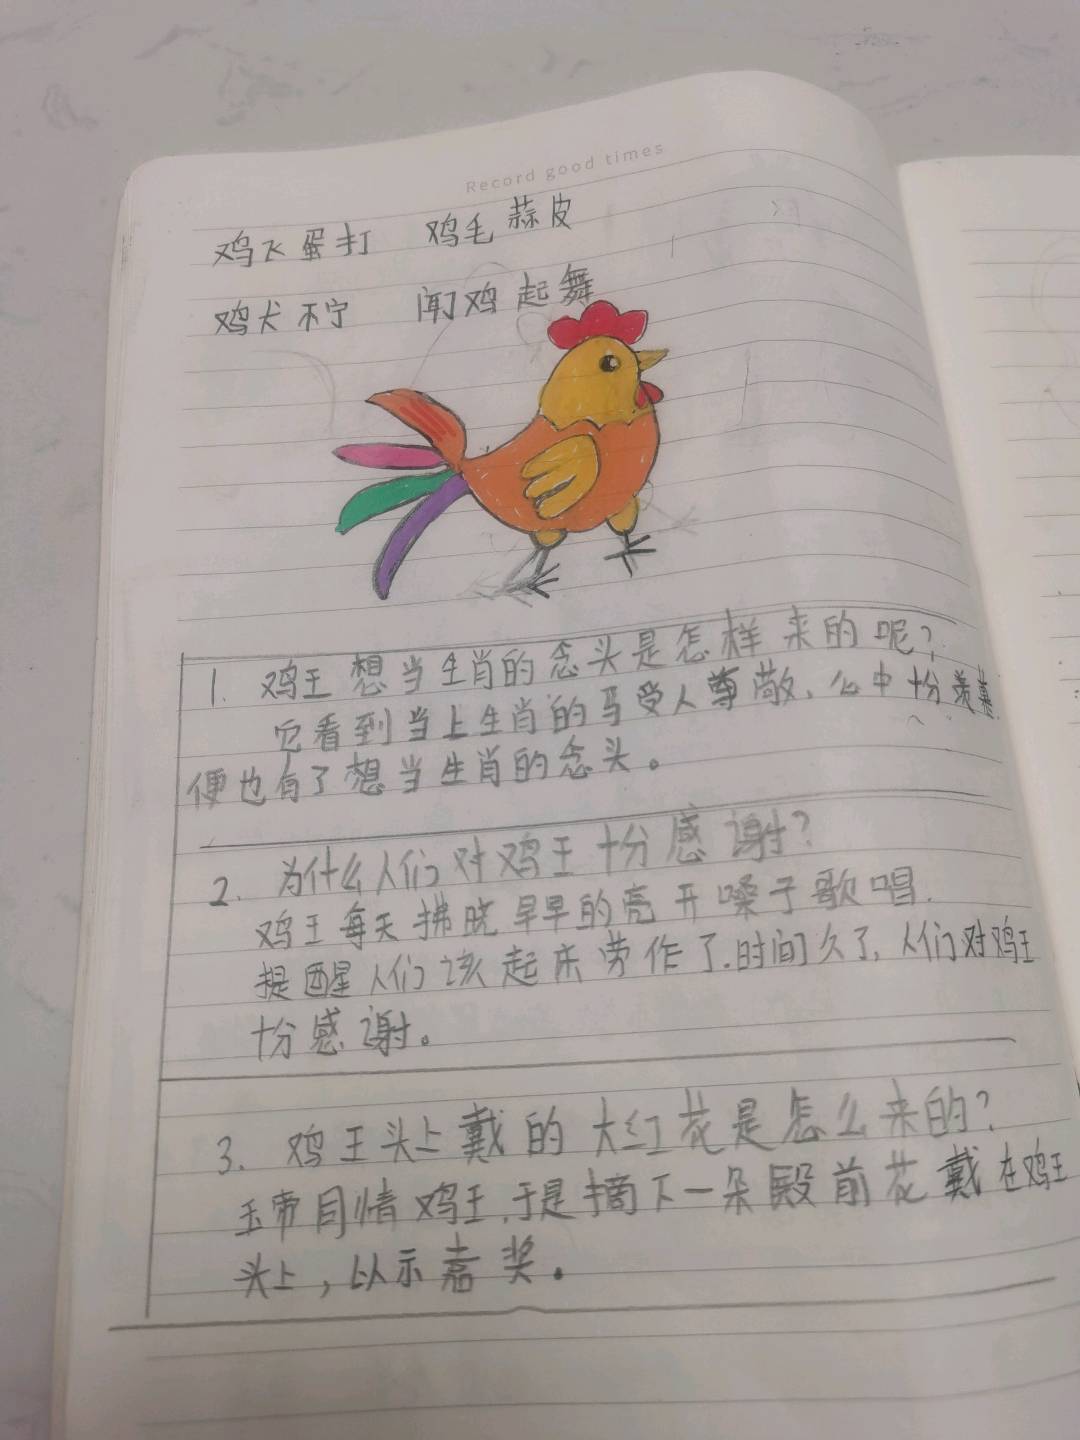 Record good times
鸡飞蛋打 鸡毛蒜皮
鸡犬不宁 闻鸡起舞
1. 鸡王想当生肖的念头是怎样来的呢？
它看到当上生肖的马受人尊敬、心中十分羡慕.
便也有了想当生肖的念头。
2. 为什么人们对鸡王十分感谢？
鸡王每天拂晓早早的亮开嗓子歌唱.
提醒人们该起床劳作了.时间久了,人们对鸡王
十分感谢。
3. 鸡王头上戴的大红花是怎么来的？
玉帝同情鸡王,于是摘下一朵殿前花戴在鸡王
头上，以示嘉奖。